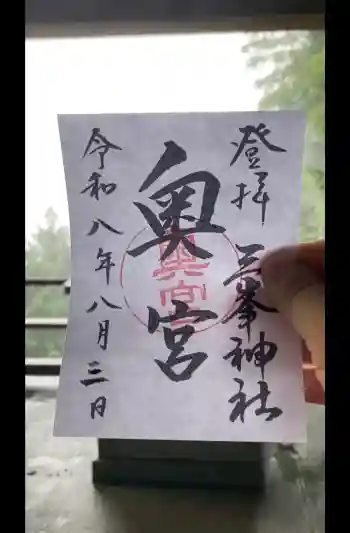 登拝 三峯神社
奥宮
奥宮
令和八年八月三日